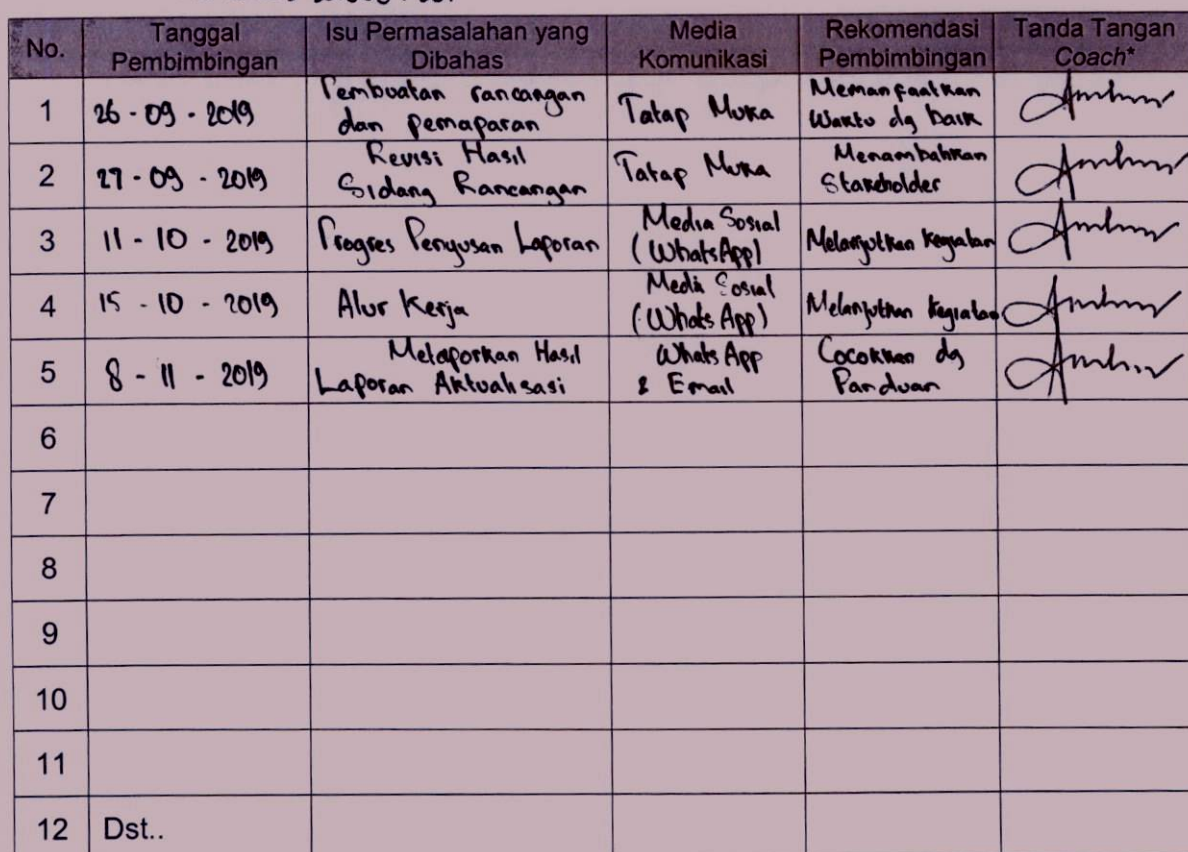 No. Tanggal Pembimbingan Isu Permasalahan yang Dibahas Media Komunikasi Rekomendasi Pembimbingan Tanda Tangan Coach*
1 26 - 09 - 2019 Pembuatan rancangan dan pemaparan Tatap Muka Memanfaatkan Waktu dg baik
2 27 - 09 - 2019 Revisi Hasil Sidang Rancangan Tatap Muka Menambahkan Stakeholder
3 11 - 10 - 2019 Progres Penyusan Laporan Media Sosial (WhatsApp) Melanjutkan kegiatan
4 15 - 10 - 2019 Alur Kerja Media Sosial (Whats App) Melanjutkan kegiatan
5 8 - 11 - 2019 Melaporkan Hasil Laporan Aktualisasi Whats App & Email Cocokkan dg Panduan
6
7
8
9
10
11
12 Dst..